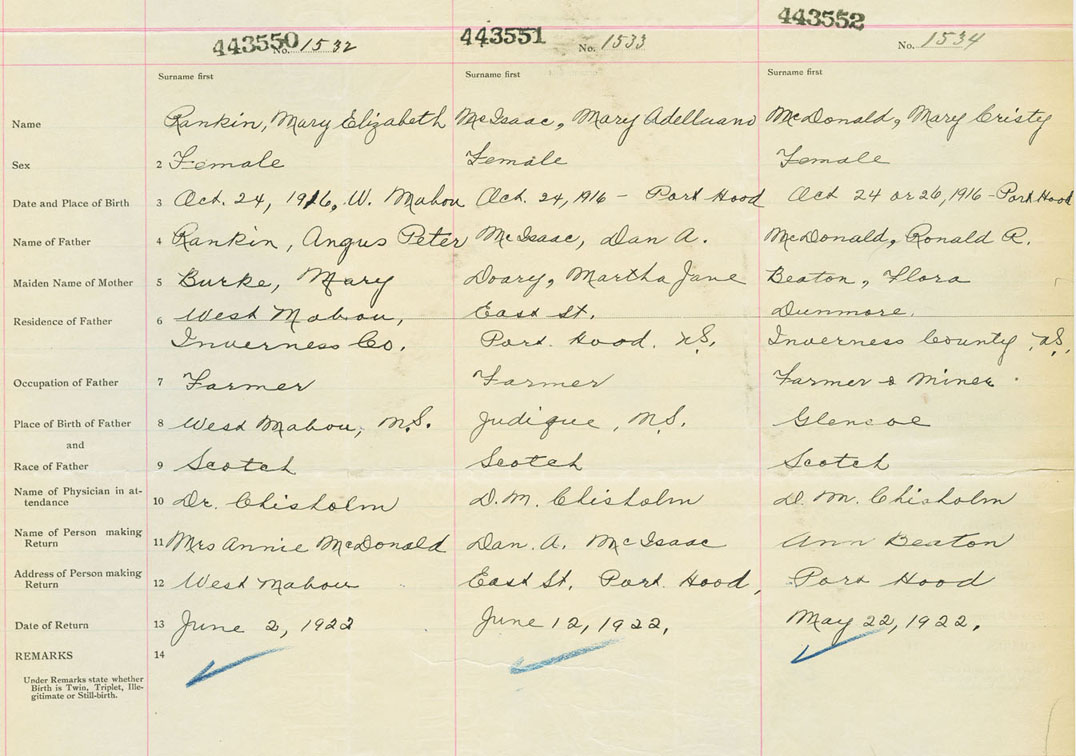 443550 No. 1532
443551 No. 1533
443552 No. 1534
Surname first Surname first Surname first
Name Rankin, Mary Elizabeth McIsaac, Mary Adelluano McDonald, Mary Cristy
Sex 2 Female Female Female
Date and Place of Birth 3 Oct. 24, 1916, W. Mabou Oct. 24, 1916 - Port Hood Oct 24 or 26, 1916 - Port Hood
Name of Father 4 Rankin, Angus Peter McIsaac, Dan A. McDonald, Ronald R.
Maiden Name of Mother 5 Burke, Mary Doary, Martha Jane Beaton, Flora
Residence of Father 6 West Mabou, East St. Dunmore.
Inverness Co. Port Hood. N.S. Inverness County, N.S.
Occupation of Father 7 Farmer Farmer Farmer & Miner
Place of Birth of Father 8 West Mabou, N.S. Judique, N.S. Glencoe
and
Race of Father 9 Scotch Scotch Scotch
Name of Physician in at-
tendance 10 Dr. Chisholm D.M. Chisholm D.M. Chisholm
Name of Person making
Return 11 Mrs Annie McDonald Dan. A. McIsaac Ann Beaton
Address of Person making
Return 12 West Mabou East St. Port Hood, Port Hood
Date of Return 13 June 2, 1922 June 12, 1922. May 22, 1922.
REMARKS 14
Under Remarks state whether
Birth is Twin, Triplet, Ille-
gitimate or Still-birth.